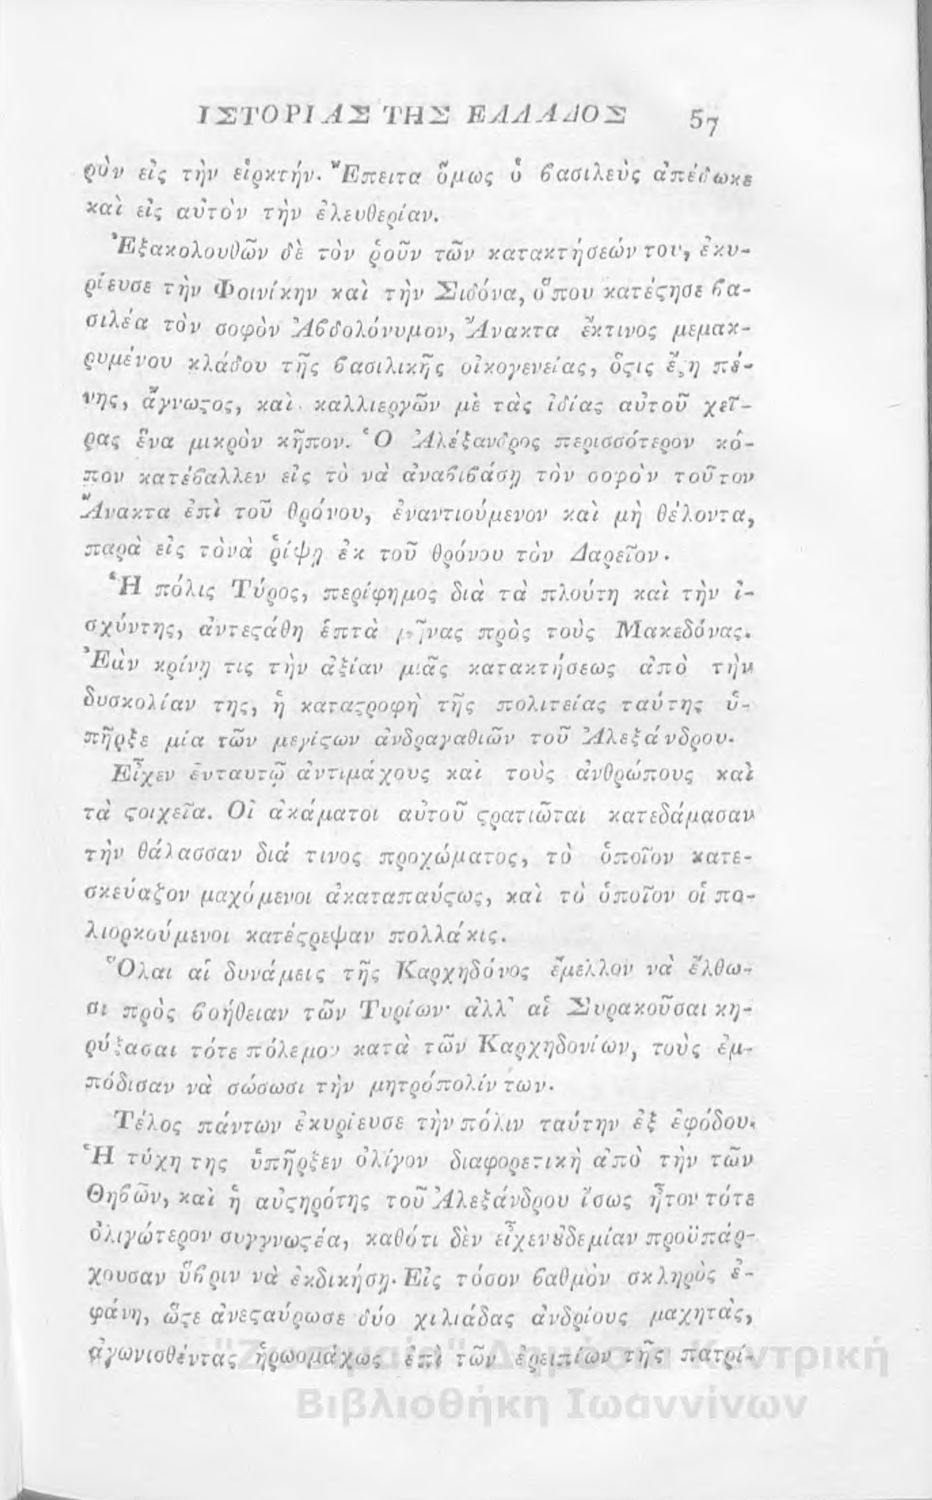 ΙΣΤΟΡΙΑΣ ΤΗΣ ΕΛΛΑΔΟΣ 57
ρὸν εἰς τὴν εἱρκτήν. Ἔπειτα ὅμως ὁ βασιλεὺς ἀπέδωκε
καὶ εἰς αὐτὸν τὴν ἐλευθερίαν.
Ἐξακολουθῶν δὲ τὸν ῥοῦν τῶν κατακτήσεών του, ἐκυ-
ρίευσε τὴν Φοινίκην καὶ τὴν Σιδόνα, ὅπου κατέςησε βα-
σιλέα τὸν σοφὸν Ἀβδολόνυμον, Ἄνακτα ἔκτινος μεμακ-
ρυμένου κλάδου τῆς βασιλικῆς οἰκογενείας, ὅςις ἔζη πέ-
νης, ἄγνωςος, καὶ καλλιεργῶν μὲ τὰς ἰδίας αὐτοῦ χεῖ-
ρας ἕνα μικρὸν κῆπον. Ὁ Ἀλέξανδρος περισσότερον κό-
πον κατέβαλλεν εἰς τὸ νὰ ἀναβιβάσῃ τὸν σοφὸν τοῦτον
Ἄνακτα ἐπὶ τοῦ θρόνου, ἐναντιούμενον καὶ μὴ θέλοντα,
παρὰ εἰς τὸνὰ ῥίψῃ ἐκ τοῦ θρόνου τὸν Δαρεῖον.
Ἡ πόλις Τύρος, περίφημος διὰ τὰ πλούτη καὶ τὴν ἰ-
σχύντης, ἀντεςάθη ἑπτὰ μῆνας πρὸς τοὺς Μακεδόνας.
Ἐὰν κρίνῃ τις τὴν ἀξίαν μιᾶς κατακτήσεως ἀπὸ τὴν
δυσκολίαν της, ἡ καταςροφὴ τῆς πολιτείας ταύτης ὑ-
πῆρξε μία τῶν μεγίςων ἀνδραγαθιῶν τοῦ Ἀλεξάνδρου.
Εἶχεν ἐνταυτῷ ἀντιμάχους καὶ τοὺς ἀνθρώπους καὶ
τὰ ςοιχεῖα. Οἱ ἀκάματοι αὐτοῦ ςρατιῶται κατεδάμασαν
τὴν θάλασσαν διά τινος προχώματος, τὸ ὁποῖον κατε-
σκεύαζον μαχόμενοι ἀκαταπαύςως, καὶ τὸ ὁποῖον οἱ πο-
λιορκούμενοι κατέςρεψαν πολλάκις.
Ὅλαι αἱ δυνάμεις τῆς Καρχηδόνος ἔμελλον νὰ ἔλθω-
σι πρὸς βοήθειαν τῶν Τυρίων· ἀλλ' αἱ Συρακοῦσαι κη-
ρύξασαι τότε πόλεμον κατὰ τῶν Καρχηδονίων, τοὺς ἐμ-
πόδισαν νὰ σώσωσι τὴν μητρόπολίν των.
Τέλος πάντων ἐκυρίευσε τὴν πόλιν ταύτην ἐξ ἐφόδου.
Ἡ τύχη της ὑπῆρξεν ὀλίγον διαφορετικὴ ἀπὸ τὴν τῶν
Θηβῶν, καὶ ἡ αὐςηρότης τοῦ Ἀλεξάνδρου ἴσως ἦτον τότε
ὀλιγώτερον συγγνωςέα, καθότι δὲν εἶχεν ȣδεμίαν προϋπάρ-
χουσαν ὕβριν νὰ ἐκδικήσῃ. Εἰς τόσον βαθμὸν σκληρὸς ἐ-
φάνη, ὥςε ἀνεςαύρωσε δύο χιλιάδας ἀνδρίους μαχητὰς,
ἀγωνισθέντας ἡρωομάχως ἐπὶ τῶν ἐρειπίων τῆς πατρί-
"Ζωσιμαία" Δημόσια Κεντρική
Βιβλιοθήκη Ιωαννίνων